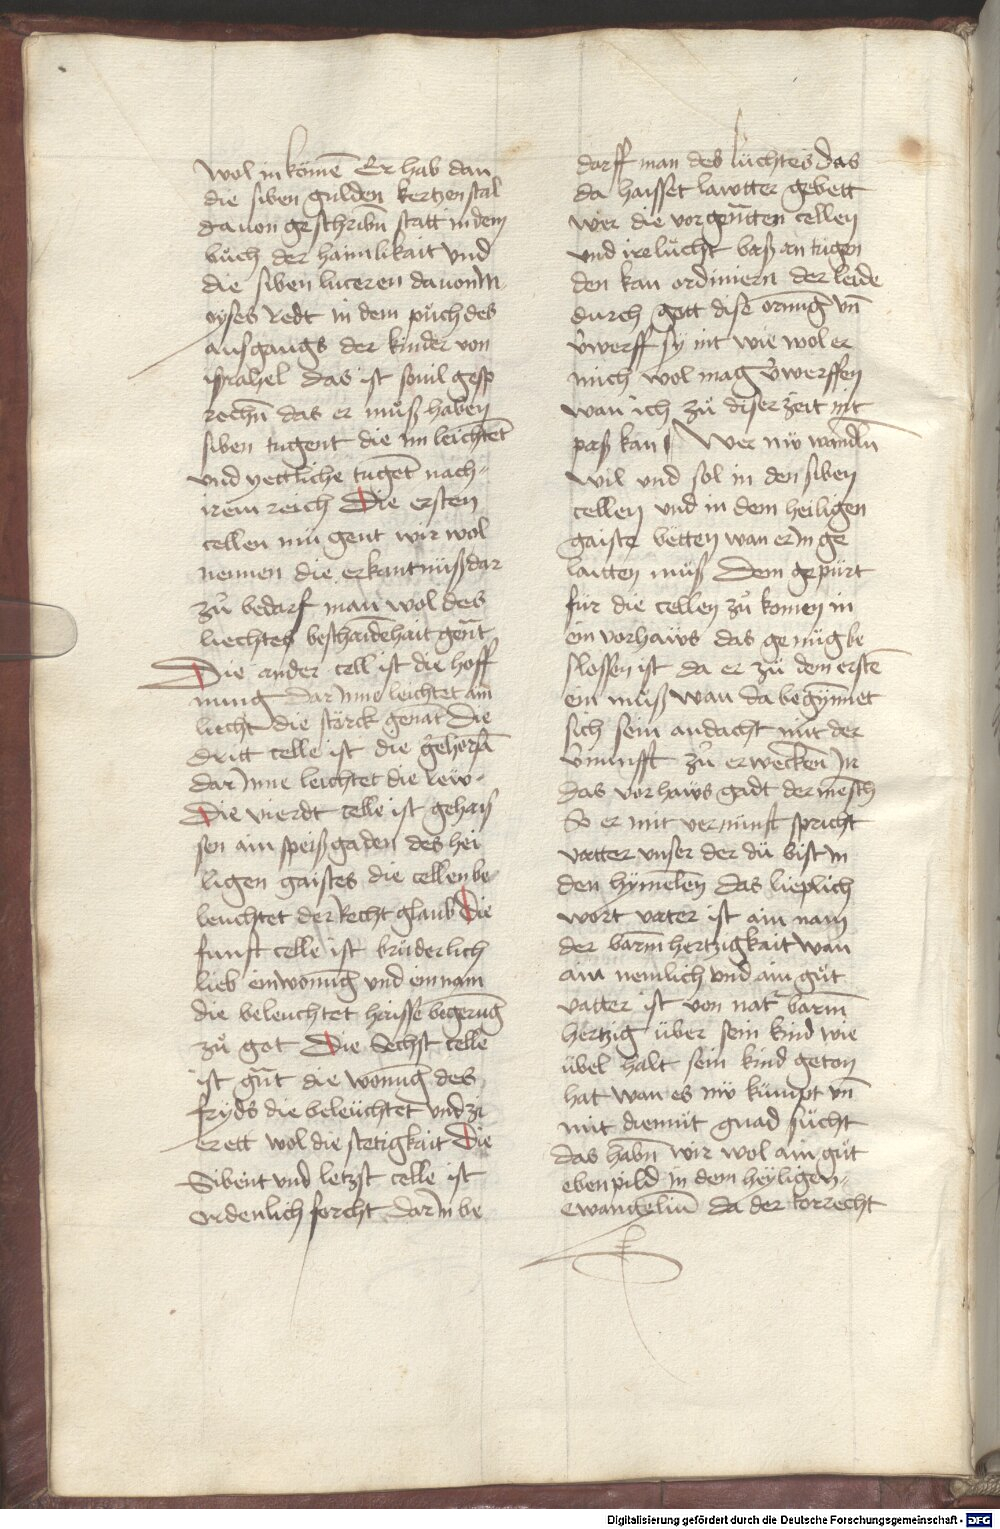 wol in kömē Er hab dan
die siben gulden kertzenstal
dauon geschribn̄ statt in dem
bůch der haimlikait vnd
die siben luceren dauon M
oyses redt in dem půch des
ausgangs der kinder von
israhel das ist souil gesp
rochn̄ das er můß haben
siben tugent die im leichtet
vnd yettliche tuget nach-
irem reich Die ersten
cellen mügent wir wol
nennen die erkantnüß dar
zů bedarf man wol des
liechtes beschaidēhait genāt
Die ander cell ist die hoff
nung Dar Inne leichtet ain
liecht die störck genāt Die
dritt celle ist die gehorsā
dar Inne leichtet die rew-
Die vierdt celle ist gehais
sen ain speißgaden des hei
ligen gaistes die cellen be-
leuchtet der Recht glaub Die
funft celle ist brüderlich
lieb einwonūg vnd ein nam
die beleuchtet haisse begerūg
zů got Die Sechst celle
ist gnāt die wonūg des
fryds die beleüchtet vnd zi
erett wol die stetigkait Die
Sibent vnd letzst celle ist
ordenlich forcht dar In be
darff man des lüchtes Das
da haisset lawtter gebett
wer die vorgenātten cellen
vnd ire lücht baß an tugen
den kan ordiniern der leide
durch gott dise ornūg vn̄
v̓werff sy nit wie wol er
mich wol mag v̓werffen
wan ich zů diser zeit nit
paß kan Wer nw wandln̄
wil vnd sol in den siben
cellen vnd in dem heiligen
gaiste betten wan er In ge
laitten můß Dem gepürt
für die cellen zů komen in
ein vorhaws das genůg be
slossen ist da er zů dem erstē
ein můß wan da begynnet
sich sein andacht mit der
v̓nunfft zů erwecken In
das vorhaws gadt der mensch
So er mit vernunft spricht
vatter vnser der dü bist in
den hymelen̄ das lieplich
wort vater ist ain nam
der barm̄hertzigkait wan
ain nemlich vnd ain gůt
vatter ist von nat̓ barm̄
hertzig über sein kind wie
übel halt sein kind geton
hat wan es nw kumpt vn̄
mit diemüt gnad sůcht
das habn̄ wir wol ain gůt
ebenpild in dem heyligen-
ewangeliū da der torrecht
Digitalisierung gefördert durch die Deutsche Forschungsgemeinschaft - DFG